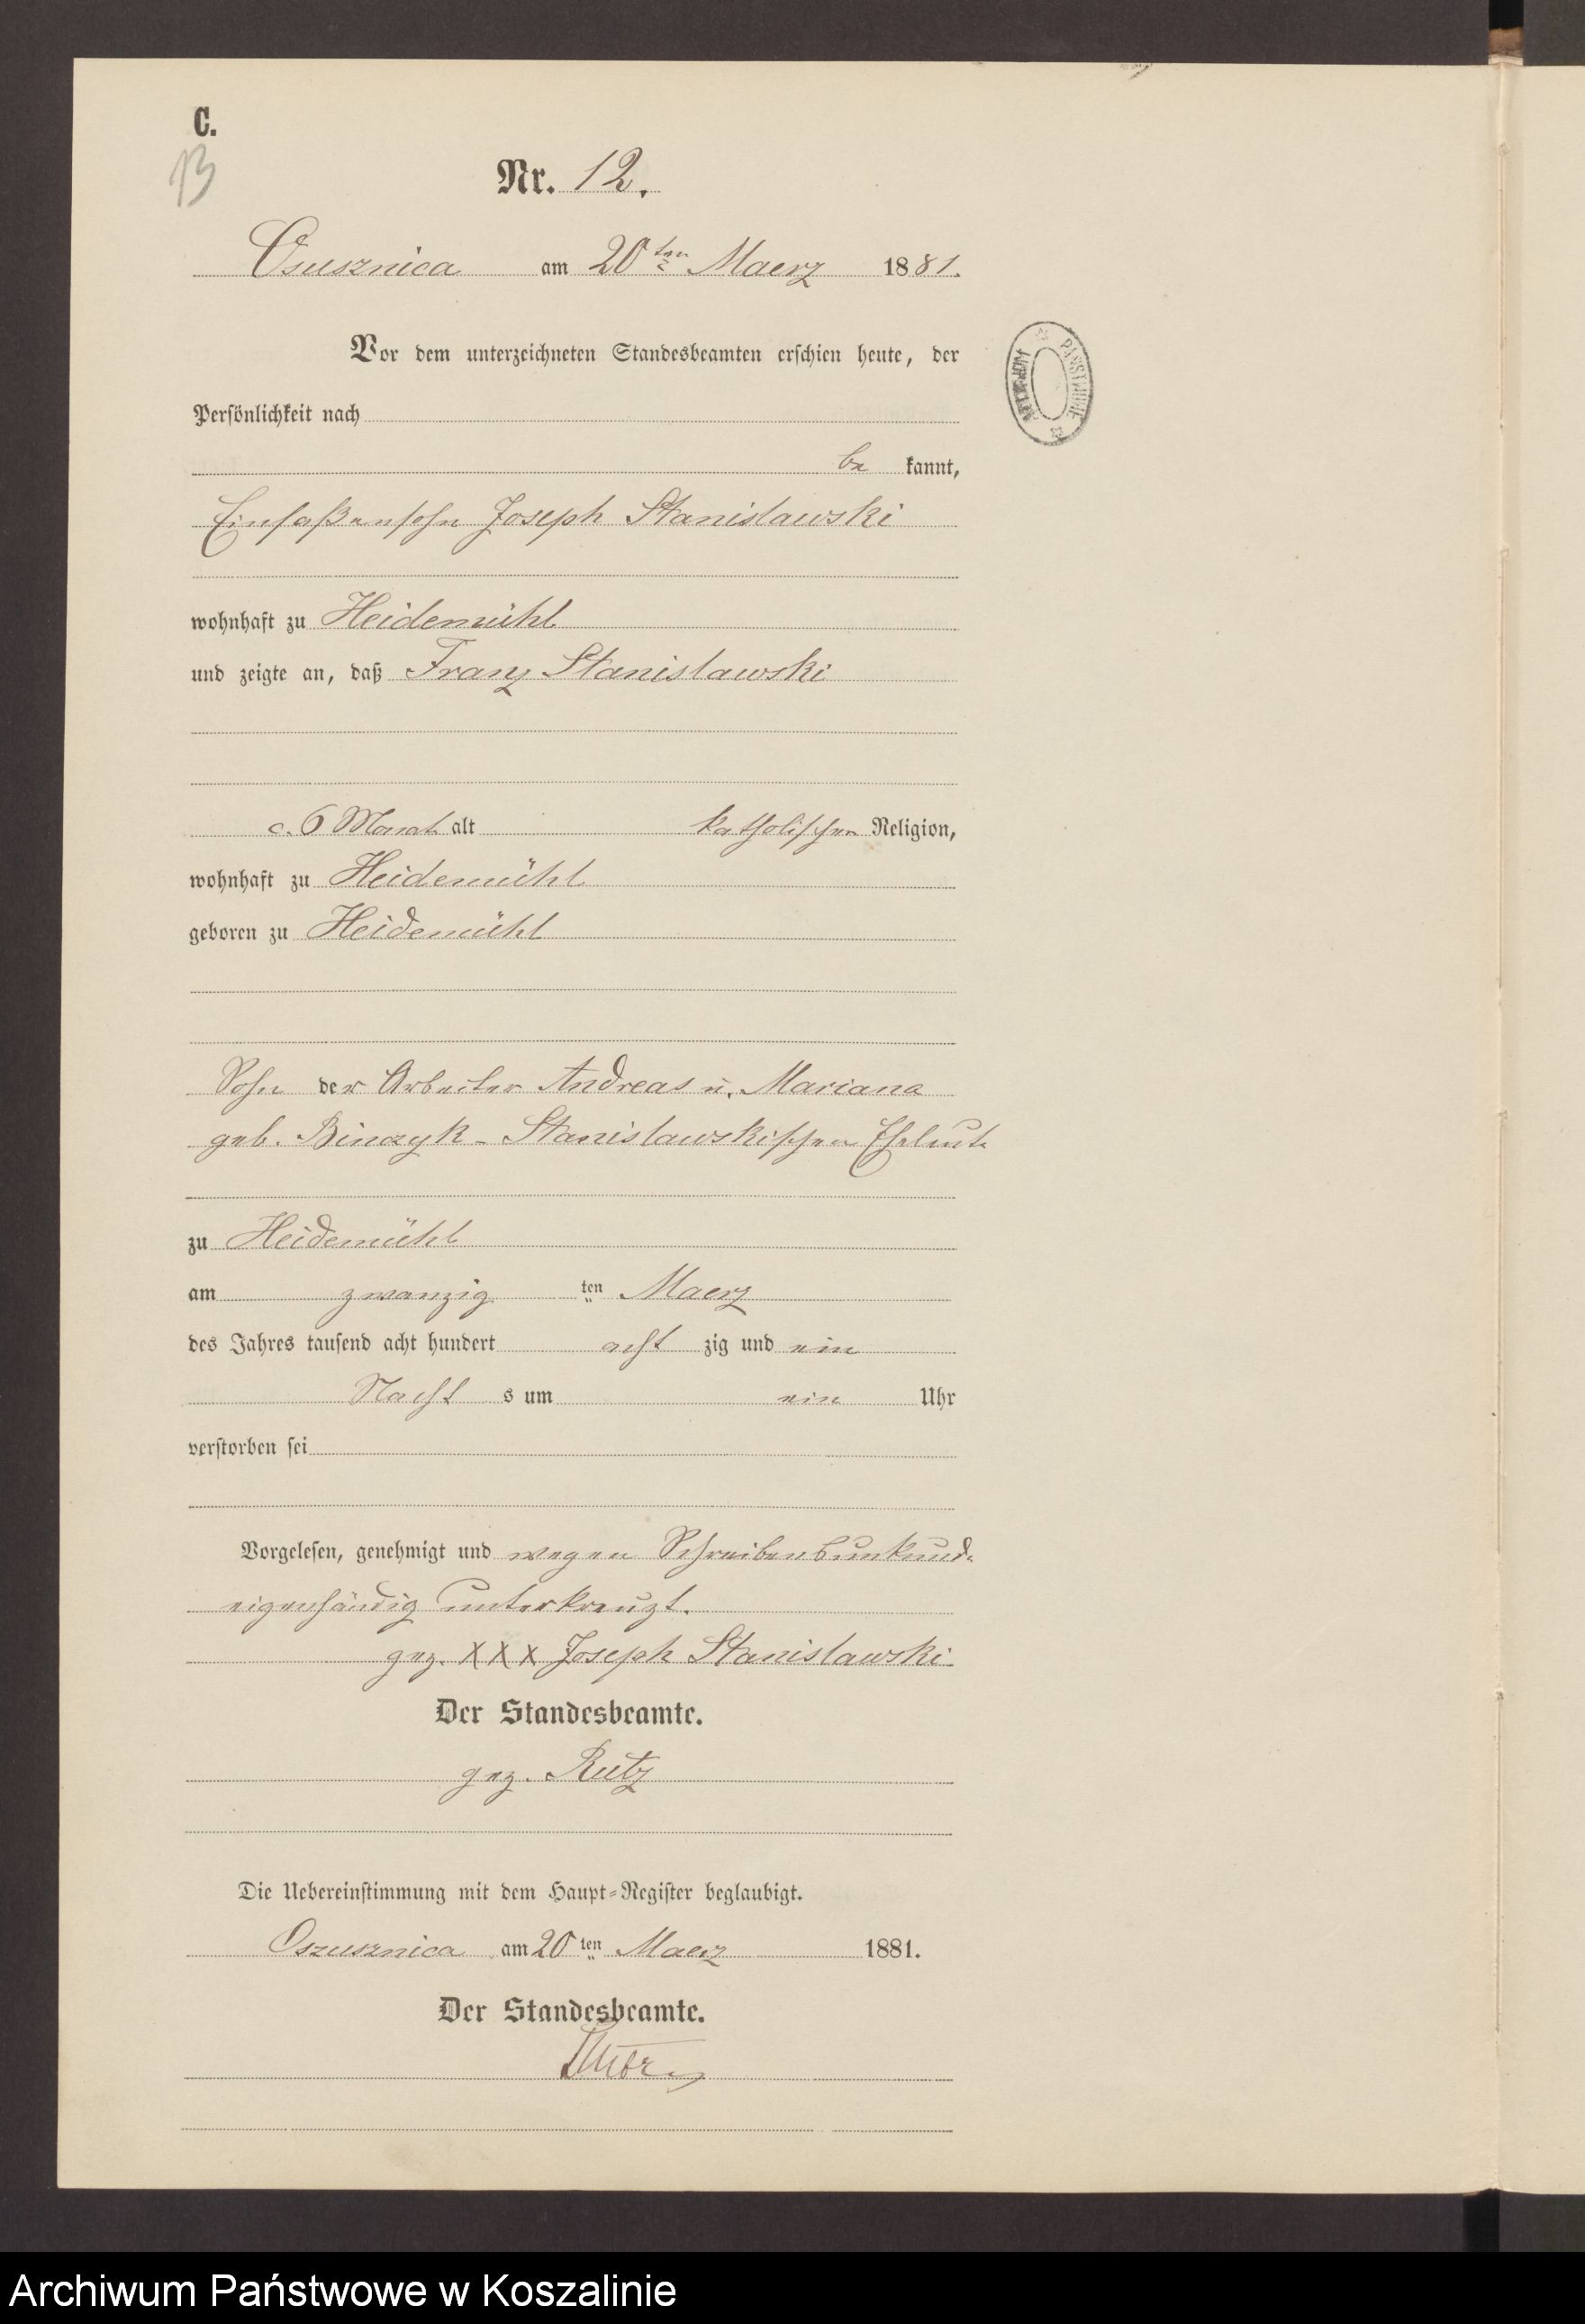 C.
13
Nr. 12.
Osusznica am 20ten Maerz 1881.
Vor dem unterzeichneten Standesbeamten erschien heute, der
Persönlichkeit nach
be kannt,
Einsaßensohn Joseph Stanislawski
wohnhaft zu Heidemühl
und zeigte an, daß Franz Stanislawski
c. 6 Monat alt katholischer Religion,
wohnhaft zu Heidemühl
geboren zu Heidemühl
Sohn der Arbeiter Andreas u. Mariana
geb. Binczyk - Stanislawskischen Eheleute
zu Heidemühl
am zwanzig ten Maerz
des Jahres tausend acht hundert acht zig und ein
Nacht s um ein Uhr
verstorben sei
Vorgelesen, genehmigt und wegen Schreibensunkunde
eigenhändig unterkreuzt.
gez. XXX Joseph Stanislawski
Der Standesbeamte.
gez. Rutz
Die Uebereinstimmung mit dem Haupt-Register beglaubigt.
Oszusznica am 20ten Maerz 1881.
Der Standesbeamte.
Rutz
ARCHIWUM PAŃSTWOWE
Archiwum Państwowe w Koszalinie